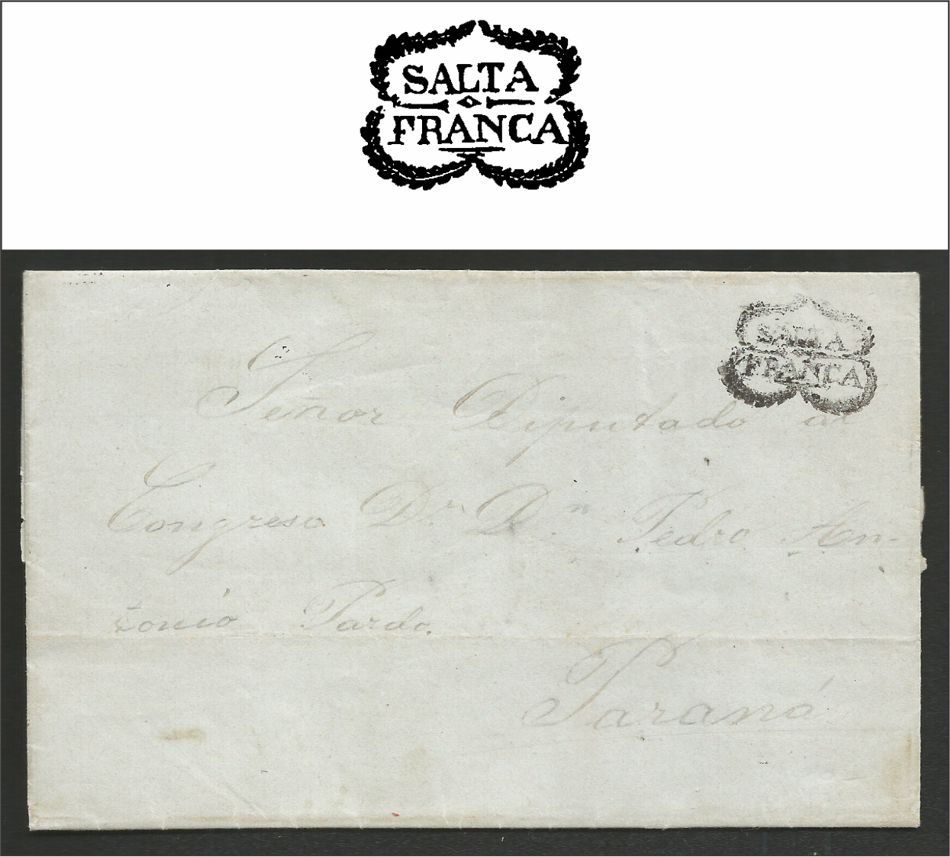 SALTA
FRANCA
SALTA
FRANCA
Señor Diputado al
Congreso Dr. Dn. Pedro An-
tonio Pardo.
Paraná